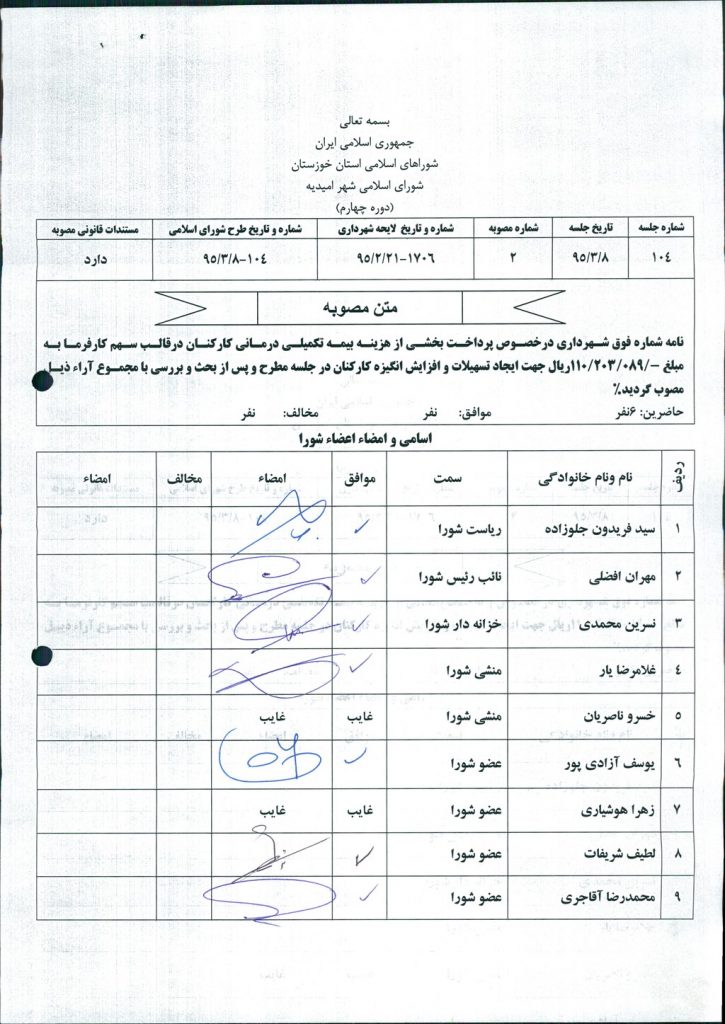 بسمه تعالی
جمهوری اسلامی ایران
شوراهای اسلامی استان خوزستان
شورای اسلامی شهر امیدیه
(دوره چهارم)
شماره جلسه	تاریخ جلسه	شماره مصوبه	شماره و تاریخ لایحه شهرداری	شماره و تاریخ طرح شورای اسلامی	مستندات قانونی مصوبه
۱۰۴	۹۵/۳/۸	۲	۹۵/۲/۲۱-۱۷۰۶	۹۵/۳/۸-۱۰۴	دارد
متن مصوبه
نامه شماره فوق شهرداری درخصوص پرداخت بخشی از هزینه بیمه تکمیلی درمانی کارکنان درقالب سهم کارفرما به
مبلغ -/۱۱۰/۲۰۳/۰۸۹ریال جهت ایجاد تسهیلات و افزایش انگیزه کارکنان در جلسه مطرح و پس از بحث و بررسی با مجموع آراء ذیل
مصوب گردید.٪
حاضرین: ۶نفر	موافق: نفر	مخالف: نفر
اسامی و امضاء اعضاء شورا
ردیف	نام ونام خانوادگی	سمت	موافق	امضاء	مخالف	امضاء
۱	سید فریدون جلوزاده	ریاست شورا
۲	مهران افضلی	نائب رئیس شورا
۳	نسرین محمدی	خزانه دار شورا
۴	غلامرضا یار	منشی شورا
۵	خسرو ناصریان	منشی شورا	غایب	غایب
۶	یوسف آزادی پور	عضو شورا
۷	زهرا هوشیاری	عضو شورا	غایب	غایب
۸	لطیف شریفات	عضو شورا
۹	محمدرضا آقاجری	عضو شورا